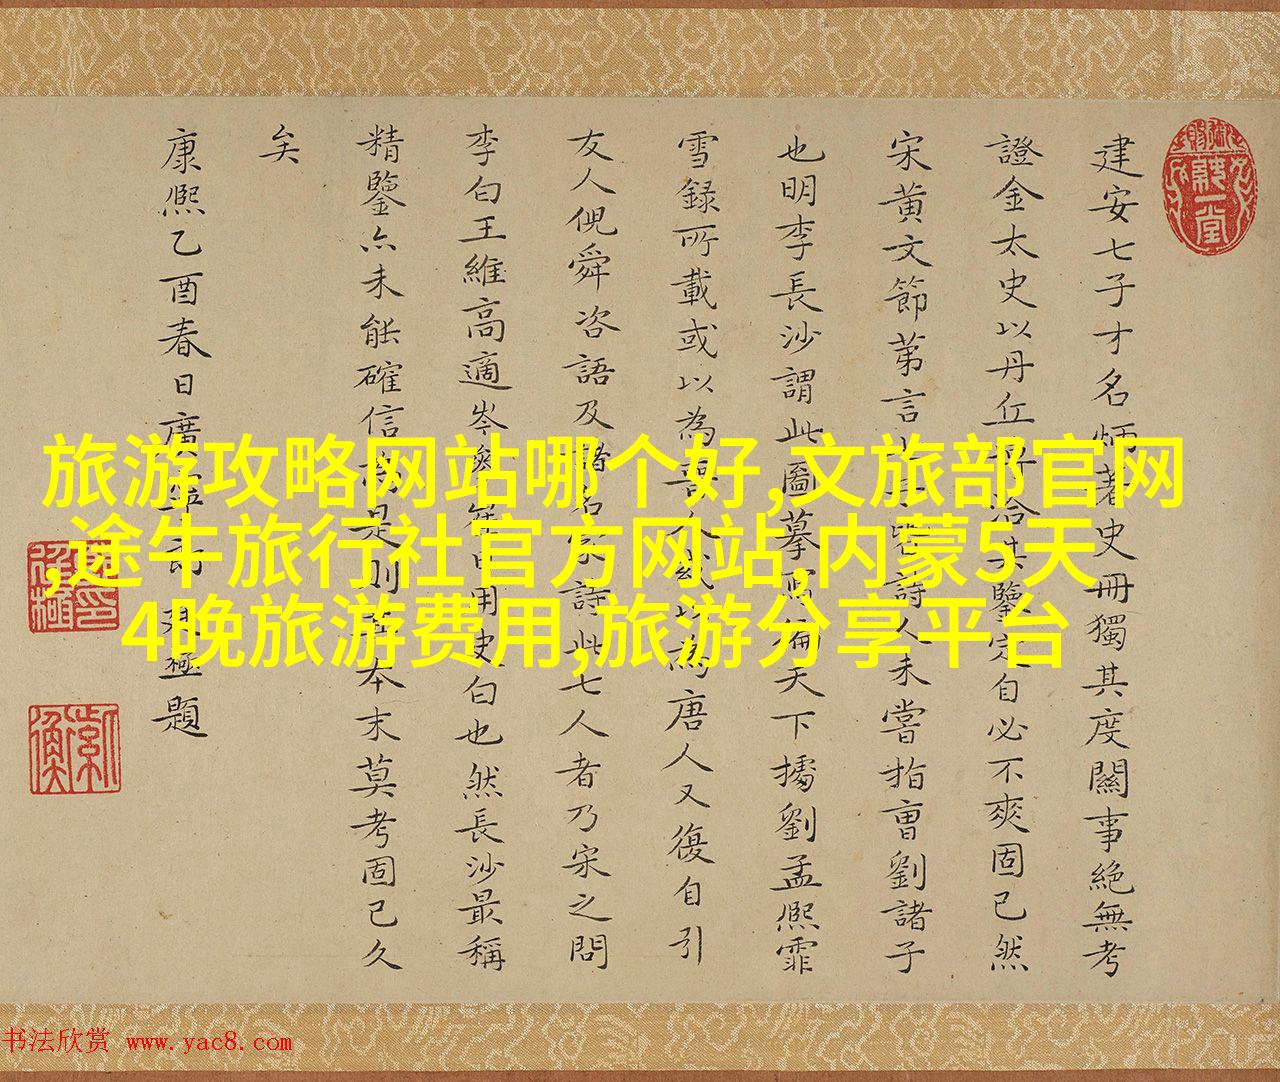 建安七子才名炳著史冊獨其度關事絕無考
證金太史以丹丘 鑒定自必不爽固已然
宋黃文節第言 詩人未嘗指曹劉諸子
也明李長沙謂此圖摹寫徧天下據劉孟熙霏
雪録所載或以為晉人或以為唐人又復自引
友人倪舜咨語及諸名家詩此七人者乃宋之問
李白王維高適岑參崔 史白也然長沙最稱
精鑒亦未能確信為是則 本末莫考固已久
矣
康熙乙酉春日廣寧 題
旅游攻略网站哪个好,文旅部官网
,途牛旅行社官方网站,内蒙5天
4晚旅游费用,旅游分享平台
书法欣赏 www.yac8.com